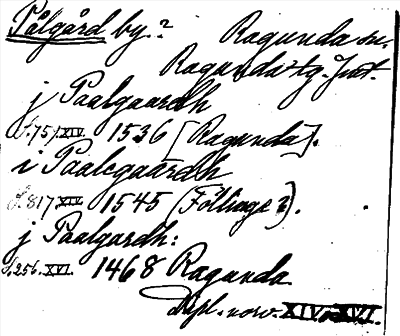 Pålgård by.? Ragunda sn.
Ragunda tg. Jmt.
j Paalgaardh
S.757.XIV. 1536 [Ragunda].
i Paalegaardh
S.817.XIV. 1545 (Föllinge?).
j Paalgardh:
S.256.XVI. 1468 Ragunda.
Dipl. norv. XIV. o. XVI.